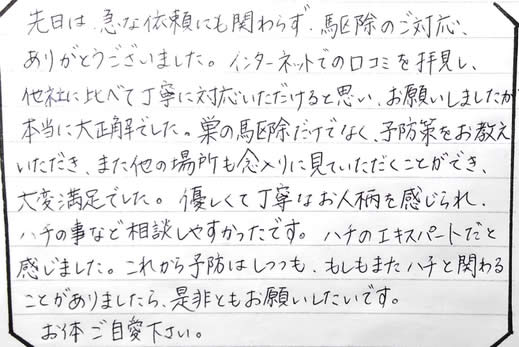 先日は、急な依頼にも関わらず、駆除のご対応、
ありがとうございました。インターネットでの口コミを拝見し、
他社に比べて丁寧に対応いただけると思い、お願いしましたが
本当に大正解でした。巣の駆除だけでなく、予防策をお教え
いただき、また他の場所も念入りに見ていただくことができ、
大変満足でした。優しくて丁寧なお人柄を感じられ、
ハチの事など相談しやすかったです。ハチのエキスパートだと
感じました。これから予防はしつつも、もしもまたハチと関わる
ことがありましたら、是非ともお願いしたいです。
お体ご自愛下さい。